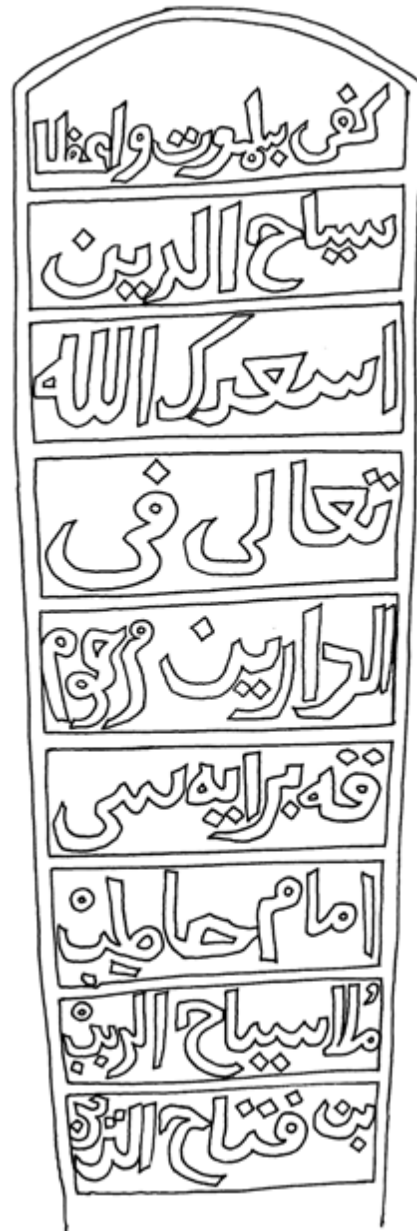 كفى بالموت واعظا
سياح الدين
اسعدك الله
تعالى فى
الدارين مرحوم
قه برايه سى
امام خاطب
ملا سيباح الدين
بن فتاح الدين